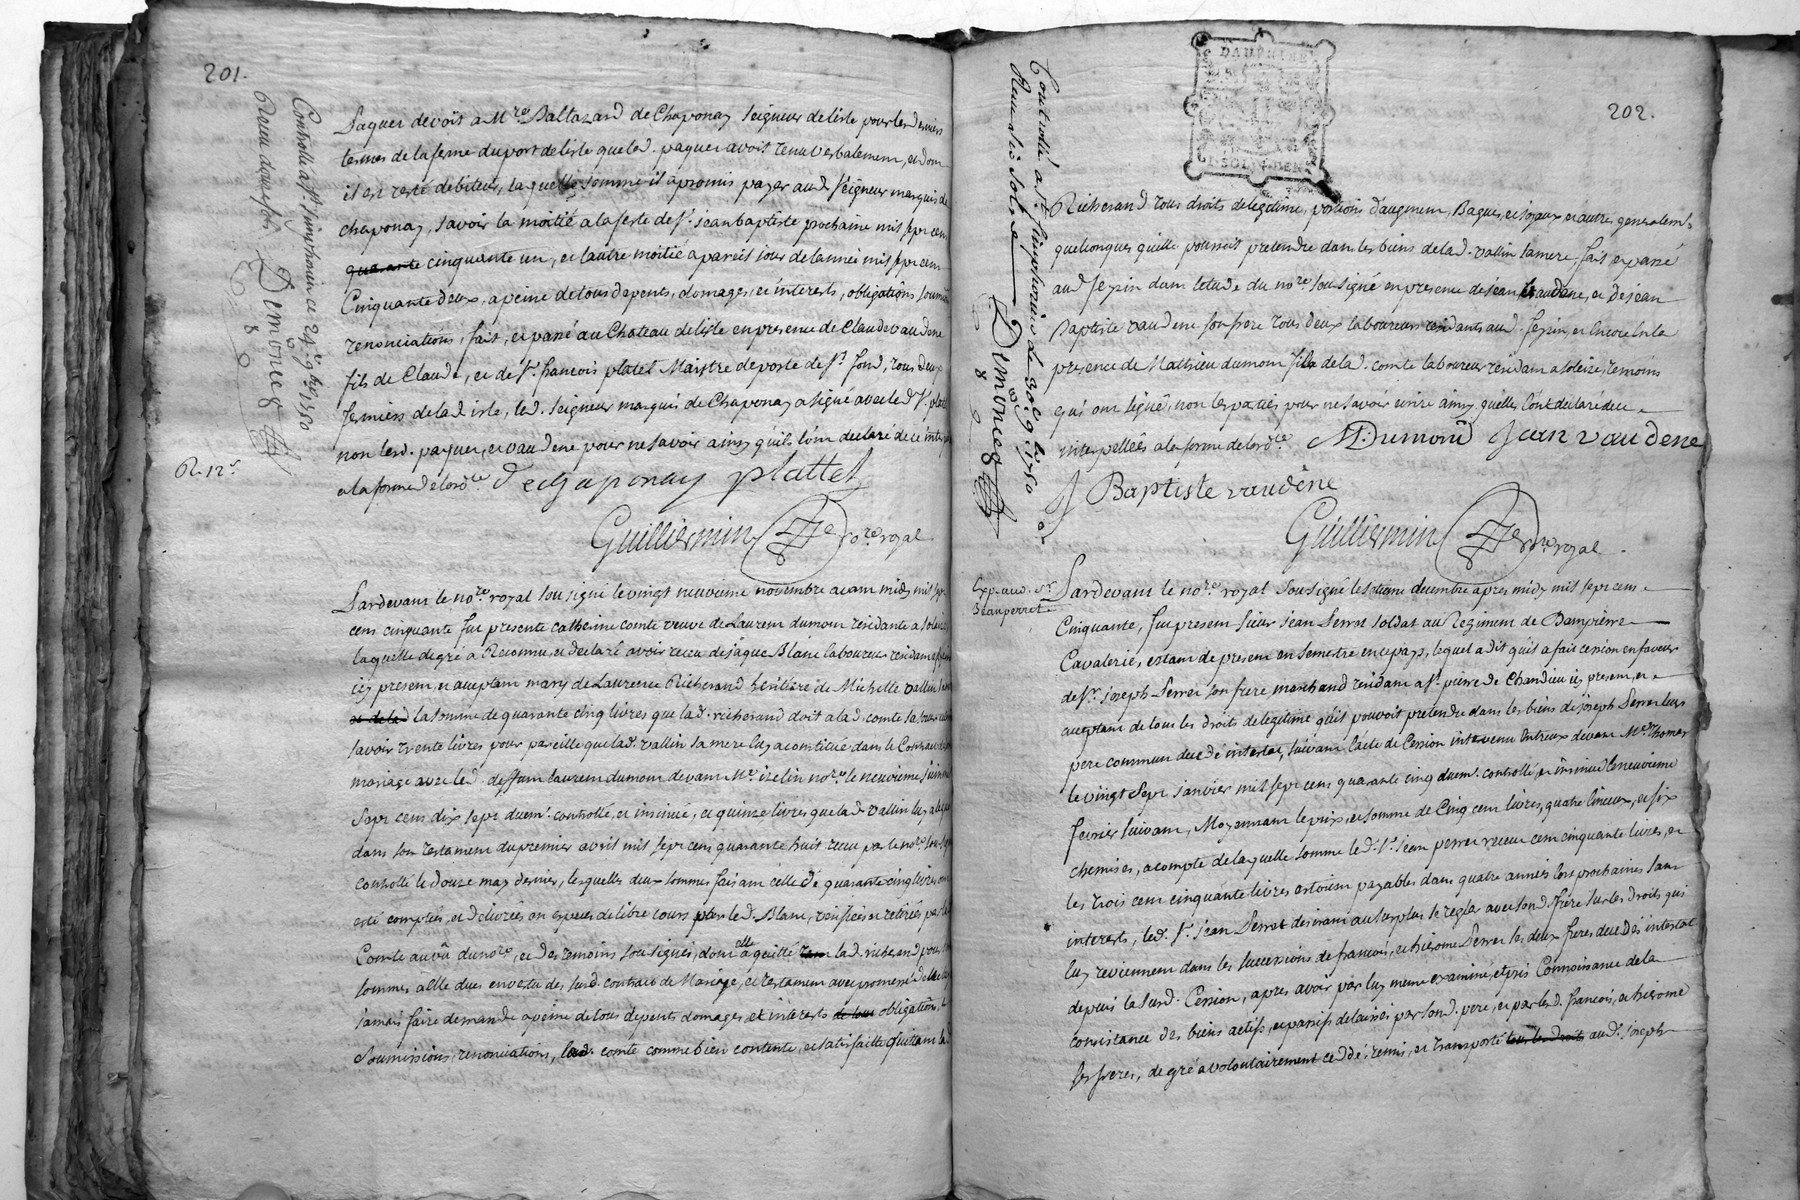 201.
Controllé a St. Simphorien ce 24e 9bre 1750
Receu douze sols Dimonceo
paquer devoit a Mre Baltazard de Chaponay seigneur delisle pour les derniers
termes de la ferme du port delisle que led. paquer avoit tenu verbalement, et dont
il est resté debiteur, laquelle somme il a promis payer aud. seigneur marquis de
chaponay, savoir la moitié a la feste de St. jean baptiste prochaine mil sept cent
quarante cinquante un, et l'autre moitié a pareil jour de lannée mil sept cent
Cinquante deux, a peine de tous depents, domages, et interests, obligations, soumis
renonciations, fait, et passé au Chateau delisle en presence de Claude vaudene
fils de Claude, et de Sr. francois platel Maistre de poste de St. fond, tous deux
fermiers de lad. isle, led. seigneur marquis de Chaponay a signé avec led. Sr. platel
non lesd. paquer, et vaudene pour ne savoir ainsy quils lont declaré de ce interp
a la forme de lordce
R. 12s
Dechaponay plattel
Guilliermin nore royal
Pardevant le nore royal sousigné le vingt neuvieme novembre avant midy mil sept
cens cinquante fut presente catherine comte veuve de Laurent dumont residante a solaize
laquelle de gré a Reconnu, et declaré avoir receu de jaque Blanc laboureur residant a
icy present, et acceptant mary de Laurence Richerand heritiere de Michelle vallin sa mere
et de lad la somme de quarante cinq livres que lad. richerand doit a lad. comte sa
savoir trente livres pour pareille que lad. vallin sa mere luy a constituée dans le Contract de
mariage avec led. deffunt laurent dumont devant Me izelin nore le neuvieme
sept cens dix sept duemt. controllé, et insinué, et quinze livres que lad. vallin luy a leguée
dans son testament du premier avril mil sept cens quarante huit receu par le nore sousigné
controllé le douze may dernier, lesquelles deux sommes faisant celle de quarante cinq livres ont
esté comptées, et delivrées en especes de libre cours par led. Blanc, verifiées et retirées par lad.
Comte au vû du nore, et des temoins sousignés, dont elle a quitté lad. richerand pour
sommes a elle dues en vertu des susd. contract de Mariage, et testament avec promesse de
jamais faire demande a peine de tous depents domages, et interests de tous obligations,
soumissions, renonciations, lad. comte comme bien contente, et satisfaitte quittant la
202.
DAUPHINE
2 SOLS 4 DEN
Controllé a St. Simphorien le 30e 9bre 1750
Receu dix sols Dimonceo
Richerand tous droits de legitime, portions d'augment, Bagues, et joyaux et autres generalemt.
quelconques quelle pourroit pretendre dans les biens de lad. vallin sa mere, fait et passé
aud. feyzin dans letude du nore sousigné en presence de jean vaudene, et de jean
Baptiste vaudene son frere tous deux laboureurs residants aud. feyzin, et encore en la
presence de Mathieu dumont fils de lad. comte laboureur residant a solaize, temoins
qui ont signé, non les parties pour ne savoir ecrire ainsy quelles l'ont declaré de ce
interpellées a la forme de lordce M. Dumont Jean vaudene
J Baptiste vaudene
Guilliermin nore royal
Exp. aud. Sr.
Jean perret
Pardevant le nore royal sousigné le septieme decembre apres midy mil sept cens
Cinquante, fut present sieur jean Perret soldat au Regiment de Dampierre
Cavalerie, estant de present en semestre en ce pays, lequel a dit quil a fait cession en faveur
de Sr. joseph Perret son frere marchand residant a St. pierre de Chandieu icy present, et
acceptant de tous les droits de legitime quil pouvoit pretendre dans les biens de joseph Perret leur
pere commun decedé intestat, suivant lacte de Cession intervenu entreux devant Me Thomas
le vingt sept janvier mil sept cens quarante cinq duemt. controllé, et insinué le neuvieme
fevrier suivant, Moyennant le prix, et somme de Cinq cent livres, quatre linceux, et six
chemises, a compte de laquelle somme led. Sr. jean perret receut cent cinquante livres, et
les trois cent cinquante livres estoient payables dans quatre années lors prochaines sans
interests, led. Sr. jean Perret desirant au surplus se regler avec sond. frere sur les droits qui
luy reviennent dans les successions de francois, et hierome Perret ses deux freres decedés intestat
depuis la susd. Cession, apres avoir par luy meme examiné, et pris Connoissance de la
consistance des biens actifs, et passifs delaissés par sond. pere, et par lesd. francois, et hierome
ses freres, de gré a volontairement cedé, remis, et transporté tous les droits aud. Sr. joseph